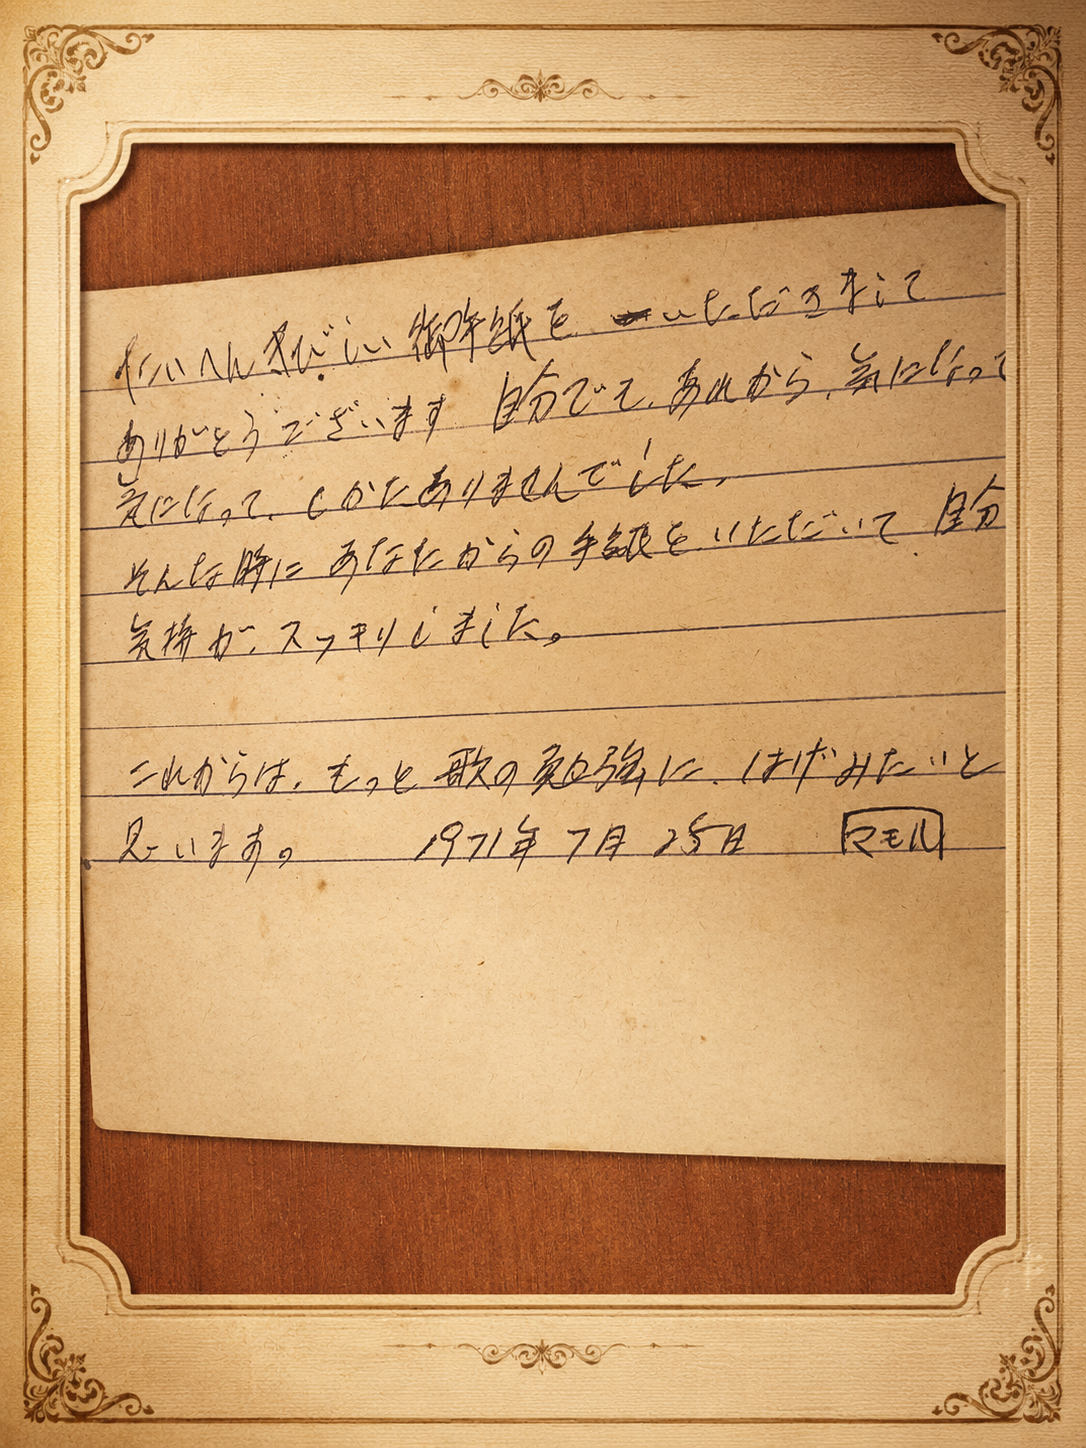 たいへんきびしい御手紙を いただきまして
ありがとうございます 自分でも、あれから、気になって
気になって、しかたありませんでした。
そんな時に あなたからの手紙を、いただいて 自分
気持が、スッキリしました。
これからは、もっと 歌の勉強に、はげみたいと
思います。 1971年 7月 25日 マモル